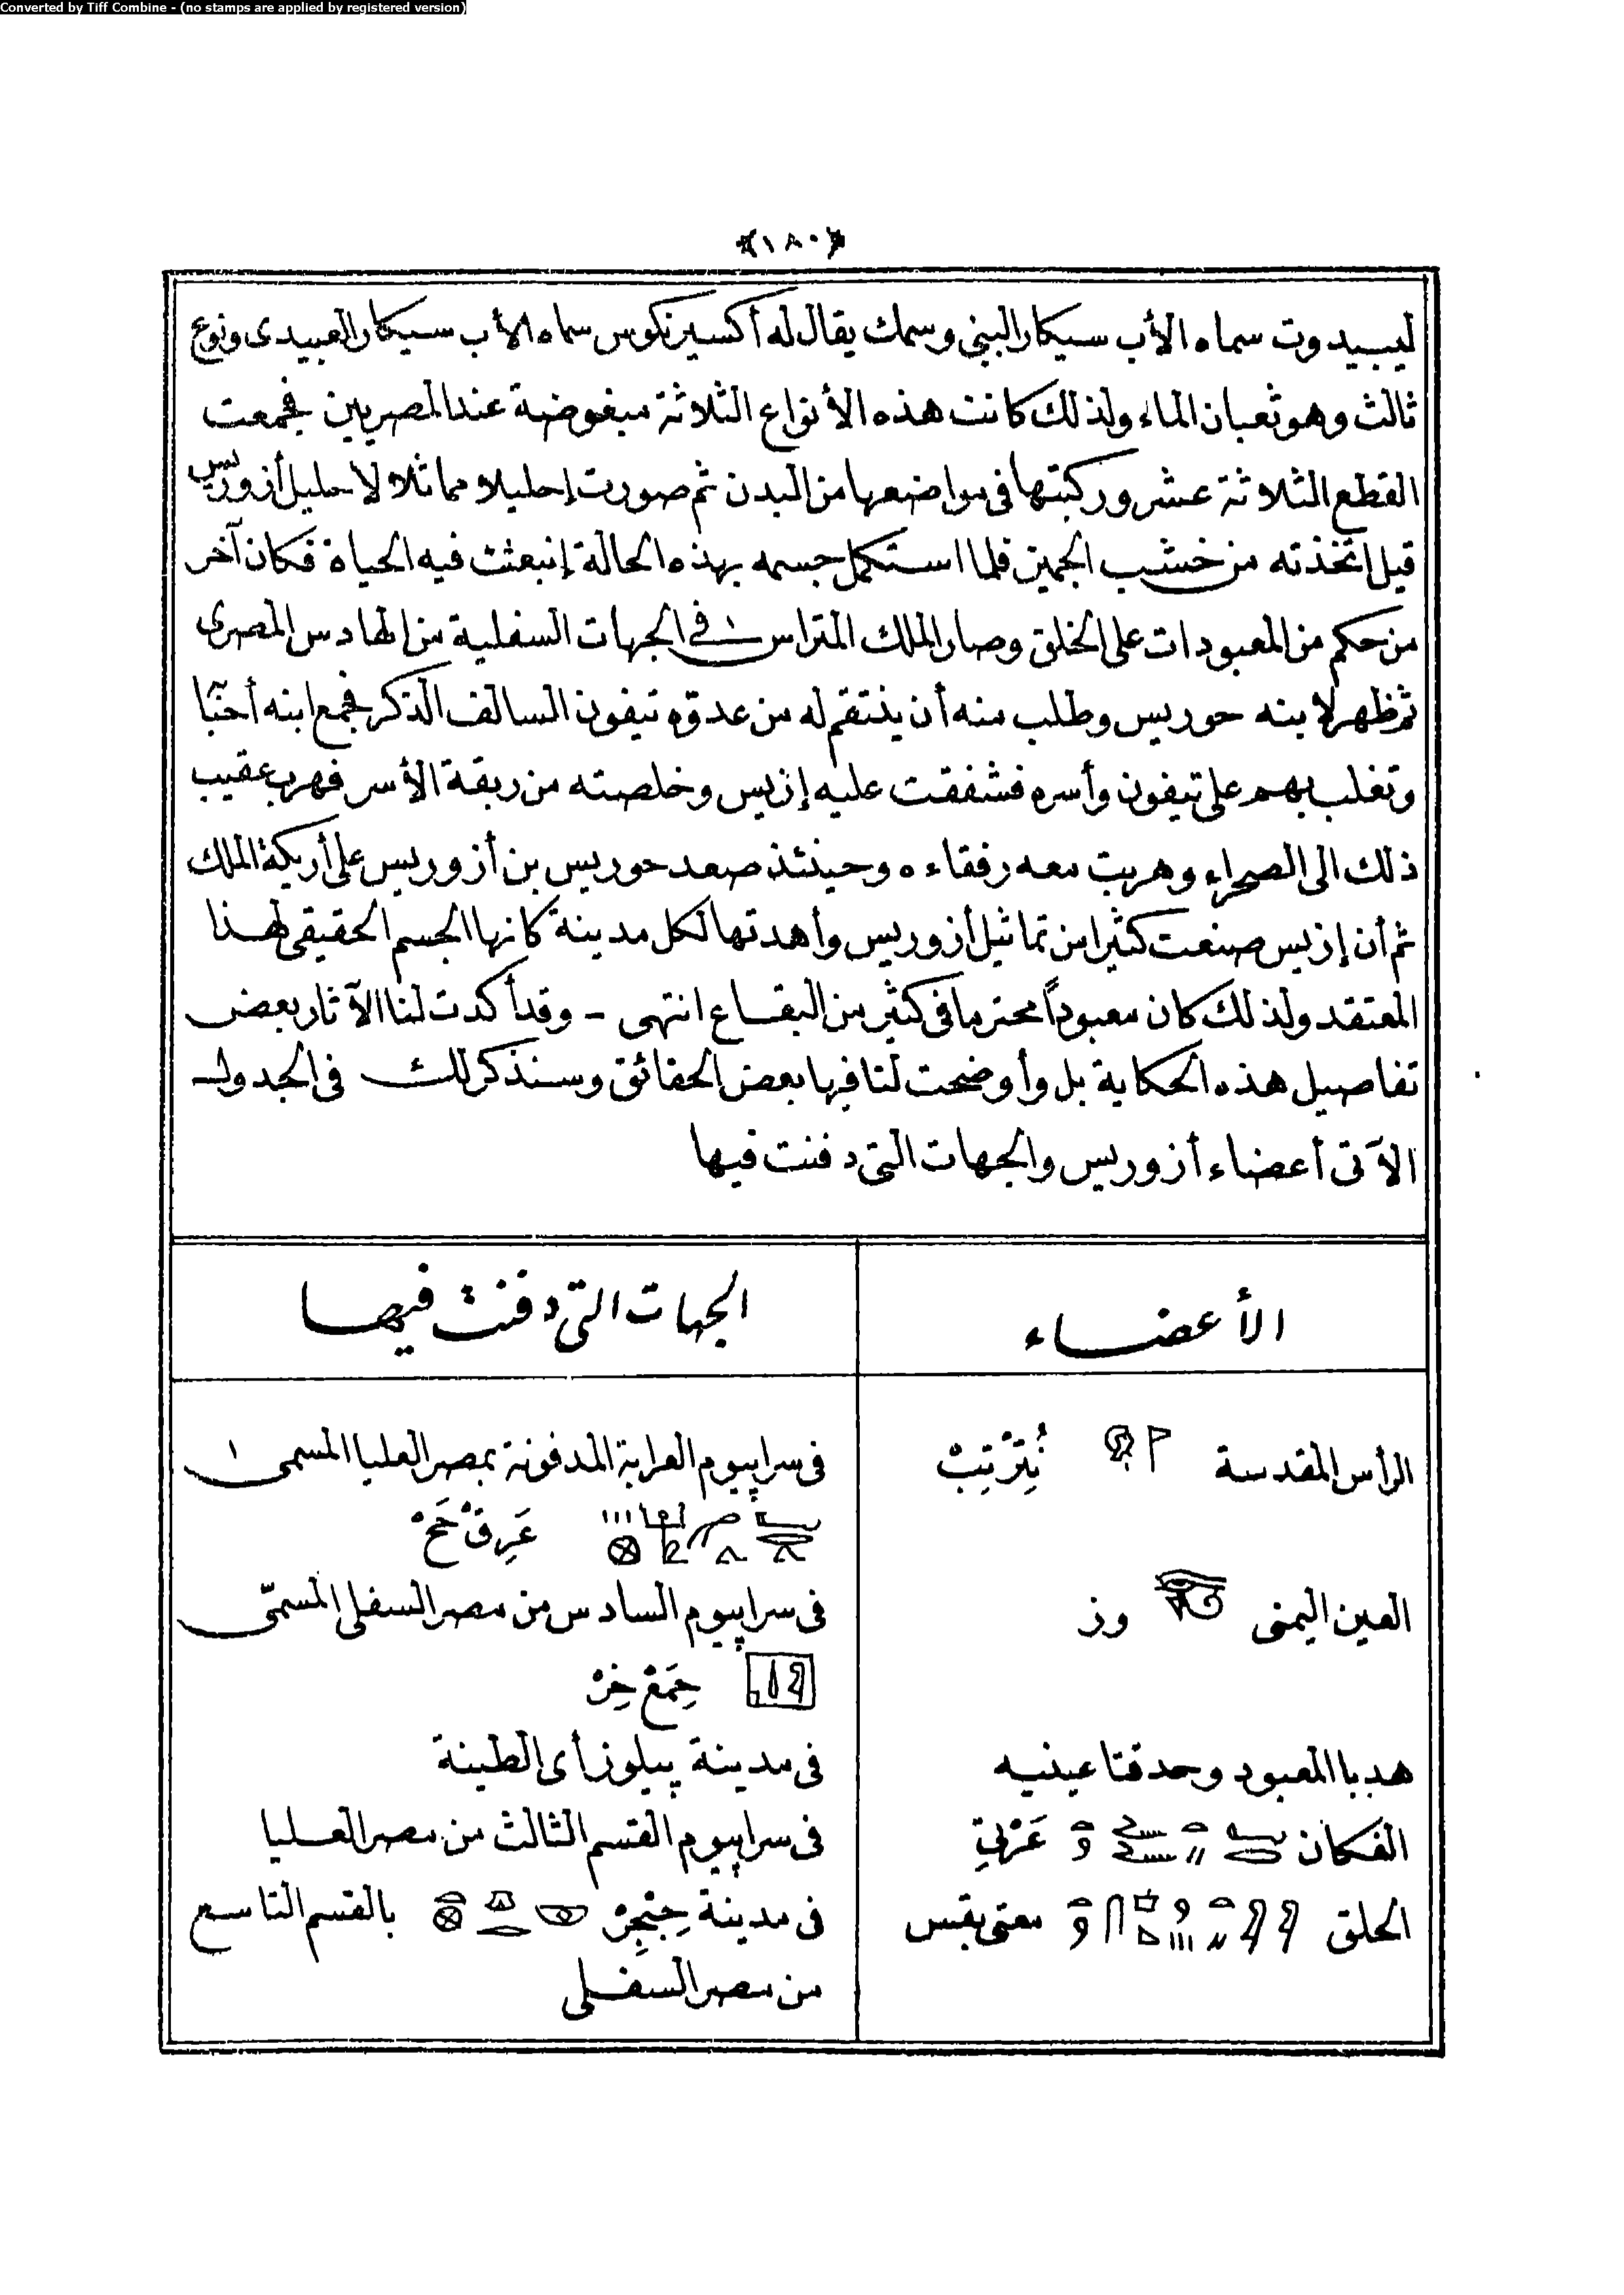 Converted by Tiff Combine - (no stamps are applied by registered version)
﴿١٨٠﴾
ليبيدوت سماه الأب سيكار البني وسمك يقال له أكسيرنكوس سماه الأب سيكار العبيدى ونوع
ثالث وهو ثعبان الماء ولذلك كانت هذه الأنواع الثلاثة مبغوضة عند المصريين فجمعت
القطع الثلاثة عشر وركبتها فى مواضعها من البدن ثم صورت إحليلا مماثلا لاحليل أزوريس
قيل اتخذته من خشب الجميز فلما استكمل جسمه بهذه الحالة إنبعثت فيه الحياة فكان آخر
من حكم من المعبودات على الخلق وصار الملك المتراس فى الجهات السفلية من الهادس المصرى
ثم ظهر لابنه حوريس وطلب منه أن ينتقم له من عدوّه تيفون السالف الذكر فجمع ابنه أحبّا
وتغلب بهم على تيفون وأسره فشفقت عليه إزيس وخلصته من ربقة الأسر فهرب عقيب
ذلك الى الصحراء وهربت معه رفقاءه وحينئذ صعد حوريس بن أزوريس على أريكة الملك
ثم أن إزيس صنعت كثيرا من تماثيل أزوريس وأهدتها لكل مدينة كانها الجسم الحقيقى لهذا
المعتقد ولذلك كان معبوداً محترما فى كثير من البقاع انتهى - وقد أكدت لنا الآثار بعض
تفاصيل هذه الحكاية بل وأوضحت لنا فيها بعض الحقائق وسنذكر لك فى الجدول
الآتى أعضاء أزوريس والجهات التى دفنت فيها
الأعضاء
الجهات التى دفنت فيها
الرأس المقدسة نِتَرْتِبْ
فى سرابيوم العرابة المدفونة بمصر العليا المسمى
عَرِقْ حَحْ
العين اليمنى وز
فى سرابيوم السادس من مصر السفلى المسمّى
حِمَعْ خِرْ
هدبا المعبود وحدقتا عينيه
فى مدينة پيلوز أى الطينة
الفكان عَرْتِي
فى سرابيوم القسم الثالث من مصر العليا
الحلق معتى بقس
فى مدينة حِبْجِرْ بالقسم التاسع
من مصر السفلى